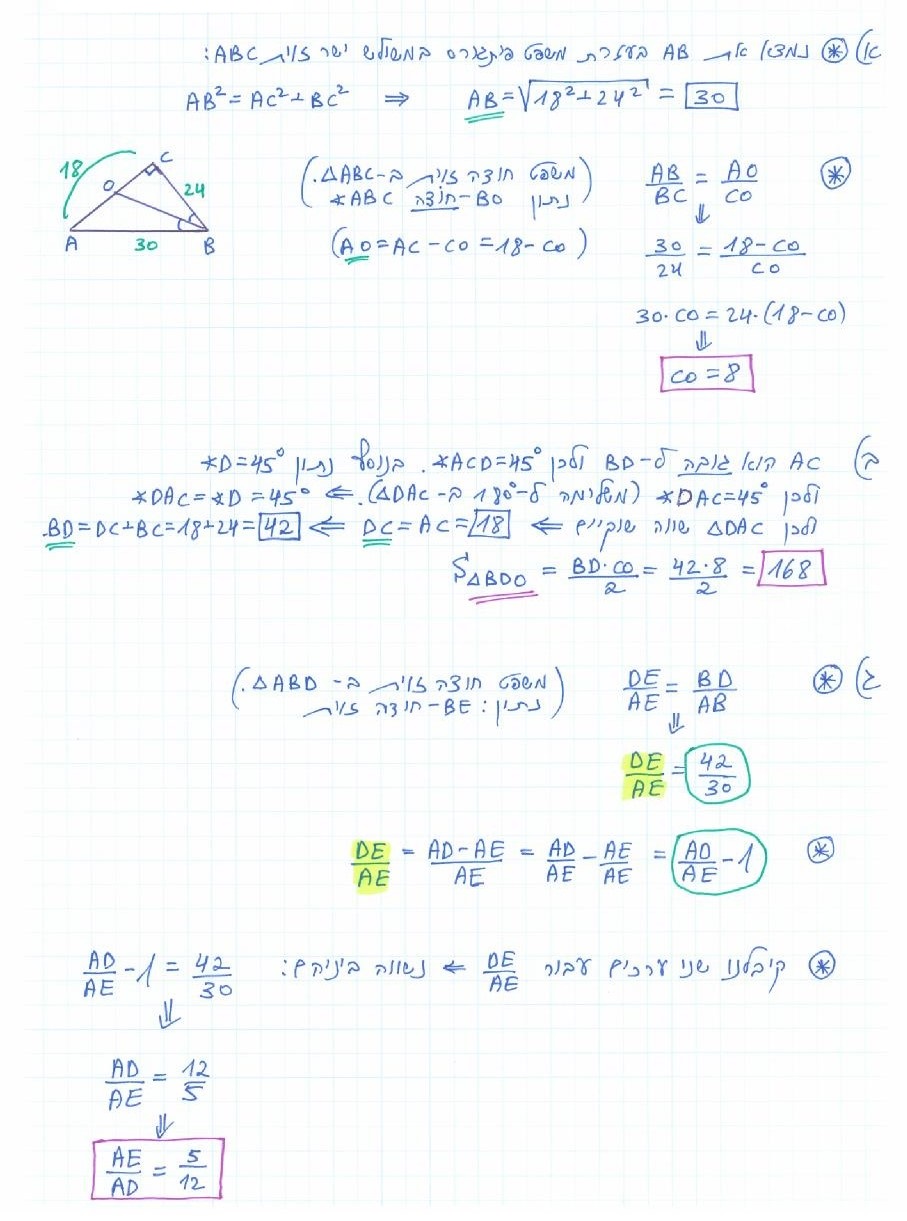 א) * נמצא את AB בעזרת משפט פיתגורס במשולש ישר זוית ABC:
AB² = AC² + BC² ⇒ AB = √18² + 24² = 30
* AB/BC = AO/CO (משפט חוצה זוית ב-ΔABC. נתון BO-חוצה ∢ABC)
⇓
30/24 = 18-CO/CO (AO = AC - CO = 18 - CO)
30·CO = 24·(18-CO)
⇓
CO = 8
18
C
O
24
A
30
B
ב) AC הוא גובה ל-BD ולכן ∢ACD=45°. בנוסף נתון ∢D=45°
ולכן ∢DAC=45° (משלימה ל-180° ב-ΔDAC). ⇐ ∢DAC=∢D=45°
ולכן ΔDAC שווה שוקיים ⇐ DC = AC = 18 ⇐ BD = DC+BC = 18+24 = 42.
SΔBDO = BD·CO/2 = 42·8/2 = 168
ג) * DE/AE = BD/AB (משפט חוצה זוית ב-ΔABD. נתון: BE-חוצה זוית)
⇓
DE/AE = 42/30
* DE/AE = AD-AE/AE = AD/AE - AE/AE = AD/AE - 1
* קיבלנו שני ערכים עבור DE/AE ⇐ נשווה ביניהם: AD/AE - 1 = 42/30
⇓
AD/AE = 12/5
⇓
AE/AD = 5/12